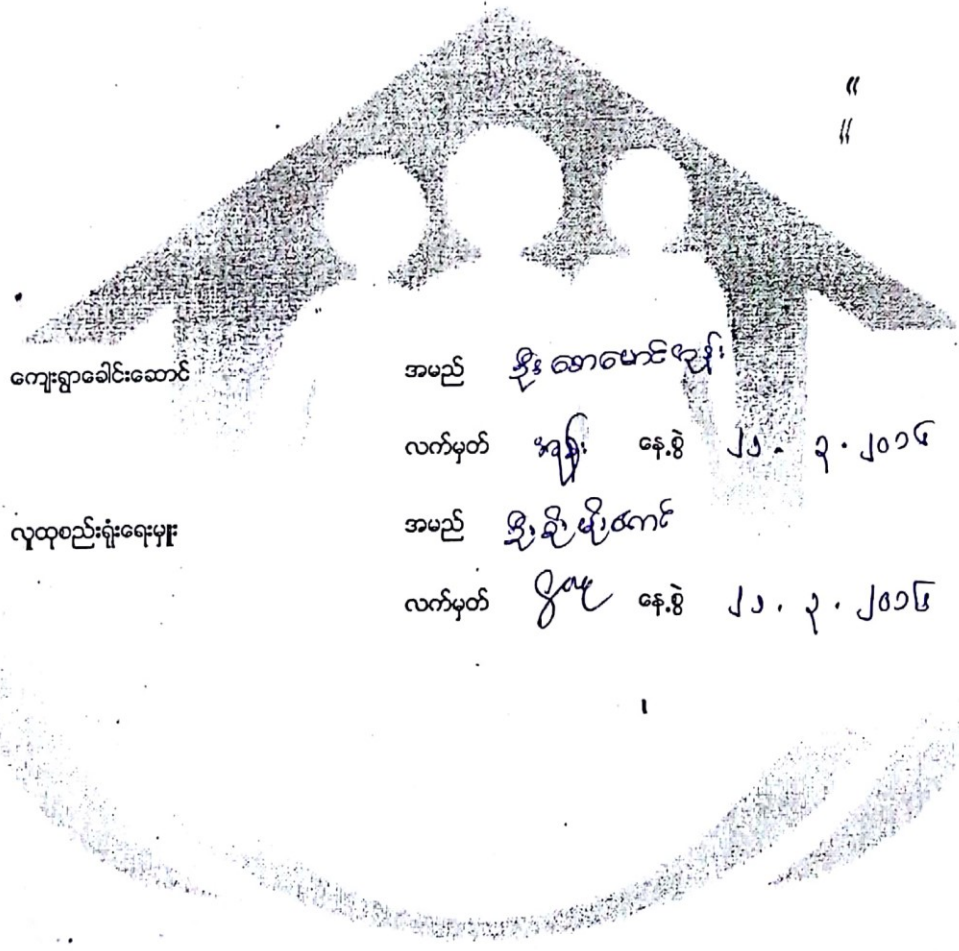 "
"
ကျေးရွာခေါင်းဆောင် အမည် ဦးအောမောင်ထွန်း
လက်မှတ် နေ့စွဲ ၂၁.၃.၂၀၁၆
လူထုစည်းရုံးရေးမှူး အမည် ဦးစိုးမိုးအောင်
လက်မှတ် နေ့စွဲ ၂၁.၃.၂၀၁၆